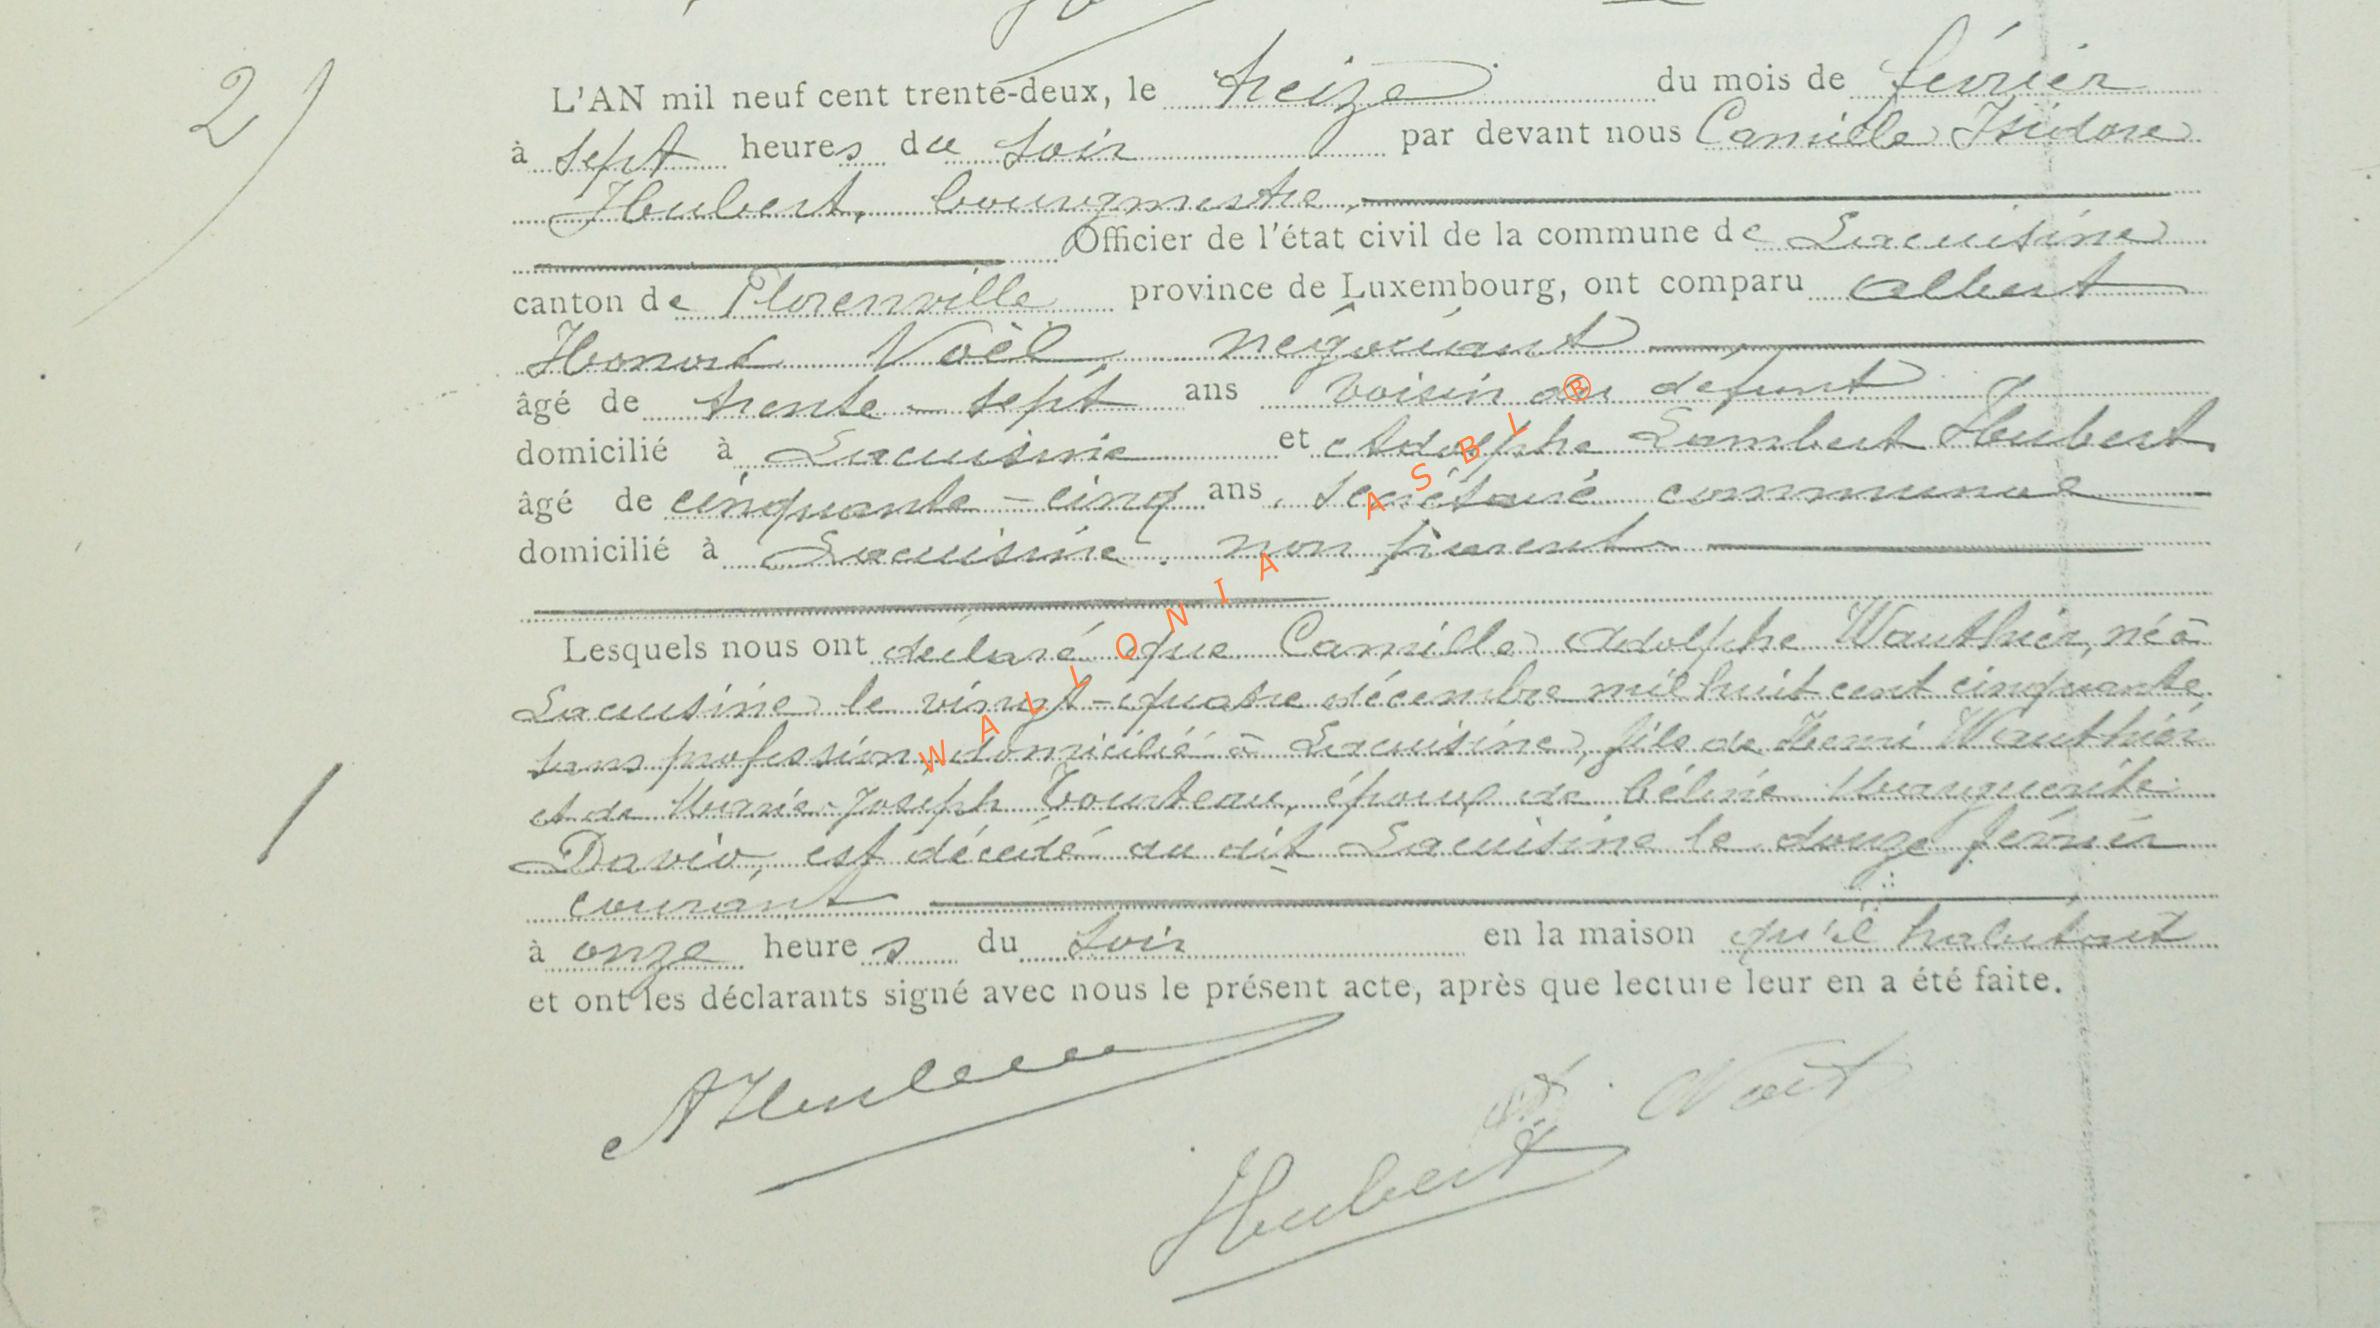 2/
L'AN mil neuf cent trente-deux, le treize du mois de février
à sept heures du soir par devant nous Camille Isidore
Hubert, bourgmestre,
Officier de l'état civil de la commune de Lacuisine
canton de Florenville province de Luxembourg, ont comparu Albert
Honoré Noël, négociant
âgé de trente-sept ans voisin du défunt
domicilié à Lacuisine et Adolphe Lambert Hubert
âgé de cinquante-cinq ans, secrétaire communal
domicilié à Lacuisine. non parent.
Lesquels nous ont déclaré que Camille Adolphe Wauthier, né à
Lacuisine le vingt-quatre décembre mil huit cent cinquante,
sans profession, domicilié à Lacuisine, fils de Henri Wauthier
et de Marie-Joseph Tourteau, époux de Céline Marguerite
David, est décédé au dit Lacuisine le douze février
courant
à onze heures du soir en la maison qu'il habitait
et ont les déclarants signé avec nous le présent acte, après que lecture leur en a été faite.
AHubert
Noël
Hubert
WALLONIA ASBL ®